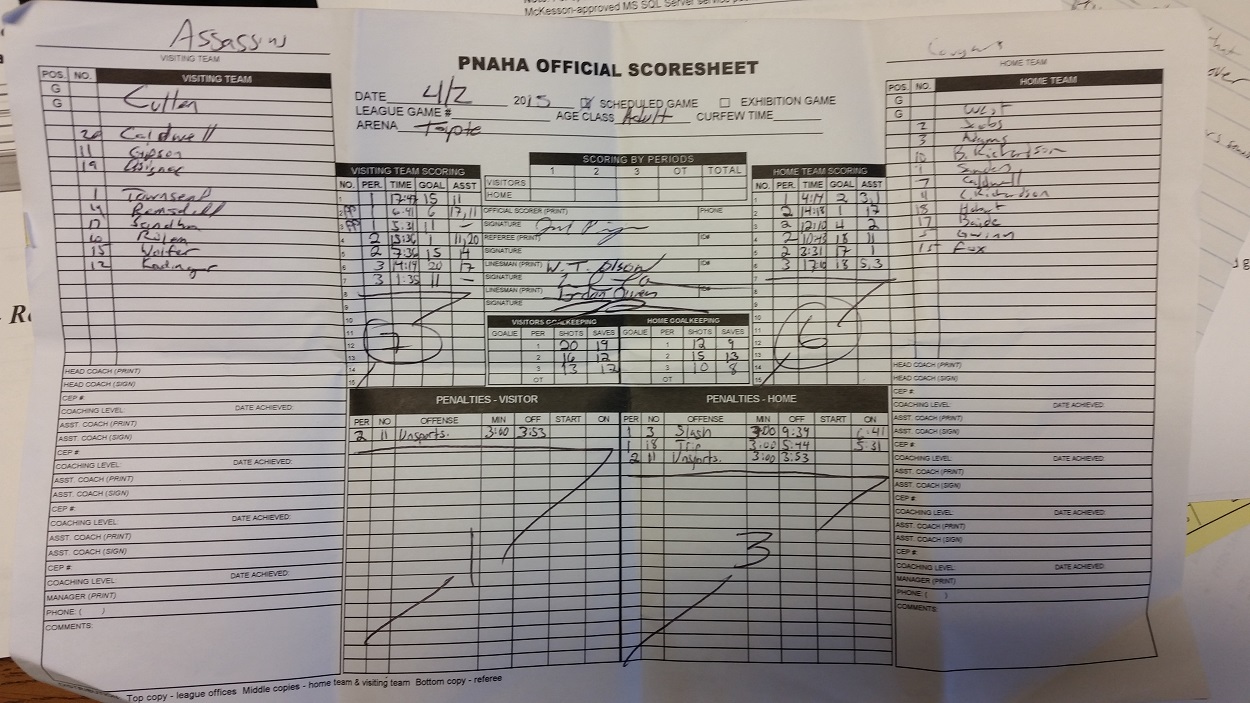 McKesson-approved MS SQL Server service
Assassins
VISITING TEAM
PNAHA OFFICIAL SCORESHEET
DATE 4/2 2015 SCHEDULED GAME EXHIBITION GAME
LEAGUE GAME # AGE CLASS Adult CURFEW TIME
ARENA
Cougars
HOME TEAM
POS. NO. VISITING TEAM
G Cullen
G
20 Caldwell
11 Gipson
19
1 Townsend
14
17
10
15 Wolfer
12
HEAD COACH (PRINT)
HEAD COACH (SIGN)
CEP #
COACHING LEVEL DATE ACHIEVED:
ASST. COACH (PRINT)
ASST. COACH (SIGN)
CEP #
COACHING LEVEL: DATE ACHIEVED:
ASST. COACH (PRINT)
ASST. COACH (SIGN)
CEP #
COACHING LEVEL: DATE ACHIEVED:
ASST. COACH (PRINT)
ASST. COACH (SIGN)
CEP #
COACHING LEVEL: DATE ACHIEVED:
MANAGER (PRINT)
PHONE: ( )
COMMENTS:
VISITING TEAM SCORING
NO. PER. TIME GOAL ASST
1 1 17:47 15 11
2 PP 1 6:41 6 17,11
3 PP 1 5:31 11 –
4 2 13:36 1 11,20
5 2 7:36 15 14
6 3 14:19 20 17
7 3 1:35 11 –
8
9
10
11
12
13
14
15
7
SCORING BY PERIODS
1 2 3 OT TOTAL
VISITORS
HOME
OFFICIAL SCORER (PRINT) PHONE
SIGNATURE
REFEREE (PRINT) IC#
SIGNATURE
LINESMAN (PRINT) W.T. Olson IC#
SIGNATURE
LINESMAN (PRINT) IC#
SIGNATURE
VISITORS GOALKEEPING HOME GOALKEEPING
GOALIE PER SHOTS SAVES GOALIE PER SHOTS SAVES
1 20 19 1 12 9
2 16 12 2 15 13
3 13 12 3 10 8
OT OT
HOME TEAM SCORING
NO. PER. TIME GOAL ASST
1 1 4:14 2 3,1
2 2 14:13 1 17
3 2 12:10 4 2
4 2 10:43 18 11
5 2 3:31 17 1
6 3 17:10 18 5,3
7
8
9
10
11
12
13
14
15
6
POS. NO. HOME TEAM
G West
G
2
3 Adams
10 B. Richardson
1 Sanders
7 Caldwell
4 C. Richardson
18
17
5
1st Fox
HEAD COACH (PRINT)
HEAD COACH (SIGN)
CEP #
COACHING LEVEL DATE ACHIEVED:
ASST. COACH (PRINT)
ASST. COACH (SIGN)
CEP #
COACHING LEVEL DATE ACHIEVED:
ASST. COACH (PRINT)
ASST. COACH (SIGN)
CEP #
COACHING LEVEL DATE ACHIEVED:
ASST. COACH (PRINT)
ASST. COACH (SIGN)
CEP #
COACHING LEVEL DATE ACHIEVED:
MANAGER (PRINT)
PHONE: ( )
COMMENTS:
PENALTIES - VISITOR
PER NO OFFENSE MIN OFF START ON
2 11 Unsports. 3:00 3:53
1
PENALTIES - HOME
PER NO OFFENSE MIN OFF START ON
1 3 Slash 3:00 9:39 6:41
1 18 Trip 3:00 5:44 5:31
2 11 Unsports. 3:00 3:53
3
Top copy - league offices Middle copies - home team & visiting team Bottom copy - referee